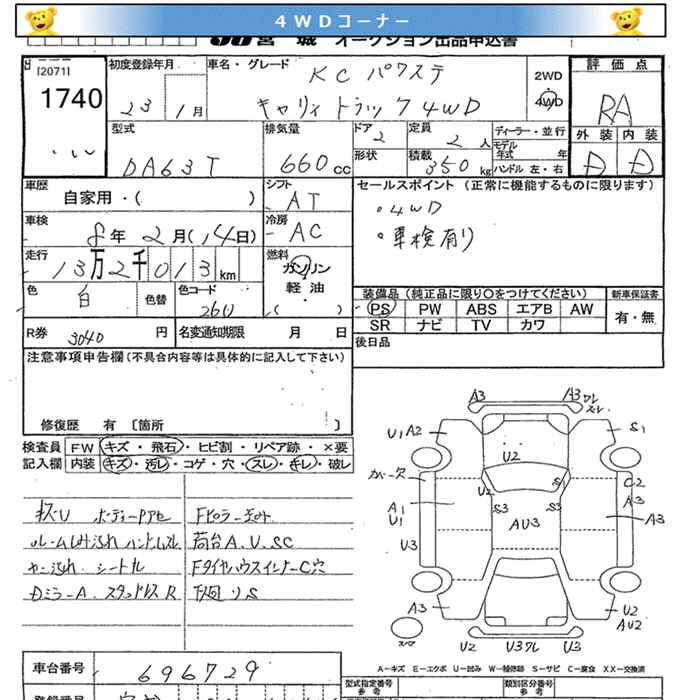 4WDコーナー
宮城 オークション出品申込書
[2071]
1740
初度登録年月 23 1月
車名・グレード KC パワステ
キャリィトラック 4WD
2WD
4WD
評価点
RA
外装 内装
D D
型式 DA63T
排気量 660cc
ドア 2
形状
定員 2人
積載 350kg
ディーラー・並行
モデル年式 年
ハンドル 左・右
車歴 自家用・( )
シフト AT
車検 8年2月(14日)
冷房 AC
走行 13万2千013km
燃料 ガソリン
軽油・
( )
色 白
色替
色コード 26U
R券 3040円
名変通知期限 月 日
セールスポイント(正常に機能するものに限ります)
・4WD
・車検有り
装備品(純正品に限り○をつけてください)
PS PW ABS エアB AW
SR ナビ TV カワ
新車保証書
有・無
後日品
注意事項申告欄(不具合内容等は具体的に記入して下さい)
修復歴 有〔箇所 〕
検査員記入欄
FW キズ・飛石・ヒビ割・リペア跡・×要
内装 キズ・汚レ・コゲ・穴・スレ・キレ・破レ
キズU ボディー下アセ
ルームしみ汚れ ハンドルスレ
シートスレ
Dミラー A. スタッドレス R
荷台A.U.SC
FタイヤハウスインナーC穴
下回リS
A3 A3
ワレ
スレ
U1 A2 S1
U2
カバー欠
U2 S1
A1
U1
S3 S3
AU3
C2
A3
A3
U3
A3 U2
AU2
スペア
U2 U3ワレ U3
A－キズ E－エクボ U－凹み W－補修跡 S－サビ C－腐食 XX－交換済
車台番号 696729
型式指定番号 参考
類別区分番号 参考
登録番号